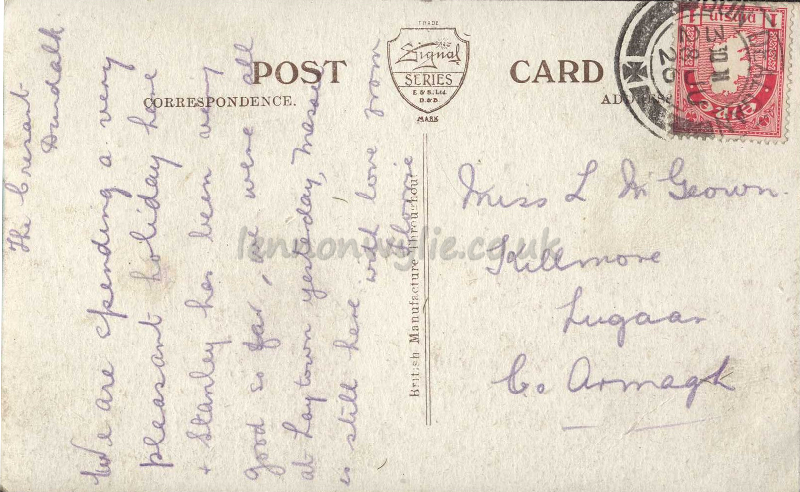 POST CARD
CORRESPONDENCE.
TRADE
Signal
SERIES
E & S. Ltd
D. & D
MARK
British Manufacture Throughout
The Cresant
Dundalk
We are spending a very
pleasant holiday here
+ Stanley has been very
good so far, we were all
at Laytown yesterday,
is still here with love from
Miss L Mc Geown.
Killmore
Lugaan
Co Armagh
1 1
lennonwylie.co.uk